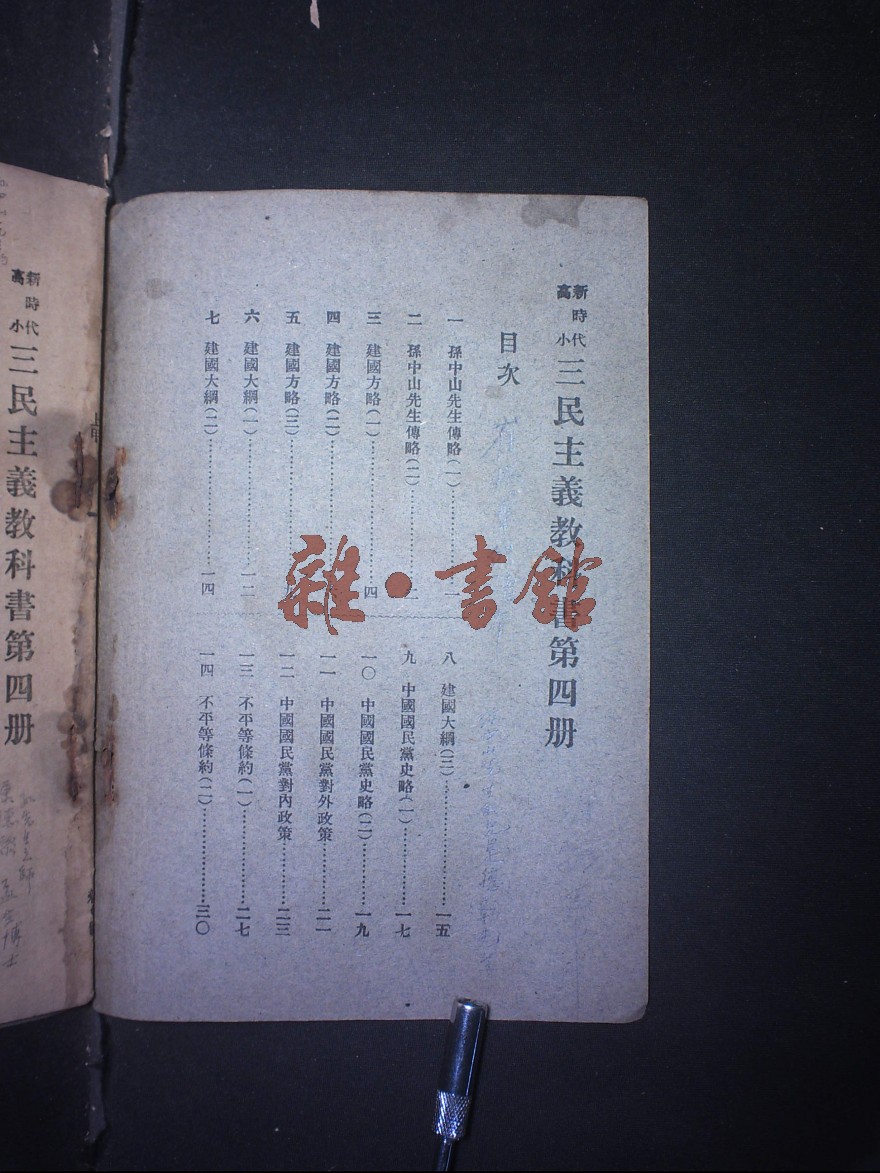 新時代高小
三民主義教科書第四册
目次
一 孫中山先生傳略(一)……一
二 孫中山先生傳略(二)……二
三 建國方略(一)……四
四 建國方略(二)……
五 建國方略(三)……九
六 建國大綱(一)……一二
七 建國大綱(二)……一四
八 建國大綱(三)……一五
九 中國國民黨史略(一)……一七
一〇 中國國民黨史略(二)……一九
一一 中國國民黨對外政策……二一
一二 中國國民黨對內政策……二三
一三 不平等條約(一)……二七
一四 不平等條約(二)……三〇
雜·書館
新時代高小
三民主義教科書第四册